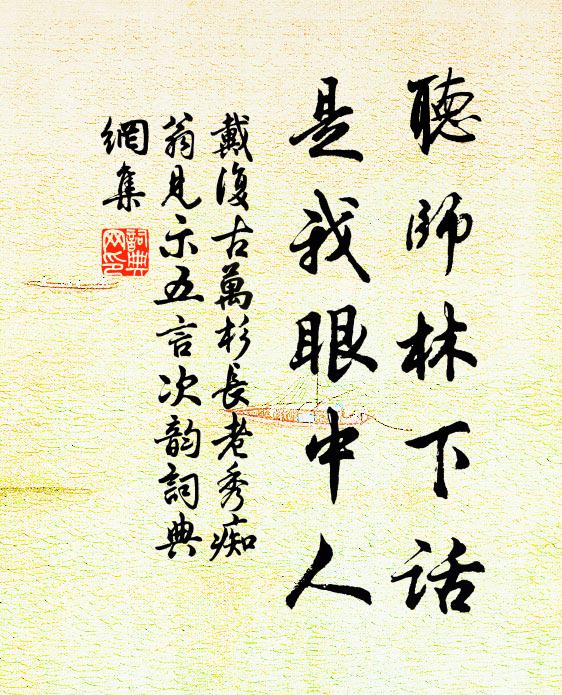 聽師林下話
是我眼中人
戴復古萬杉長老秀痴
翁見示五言次韵詞典
網集
詞典
网印